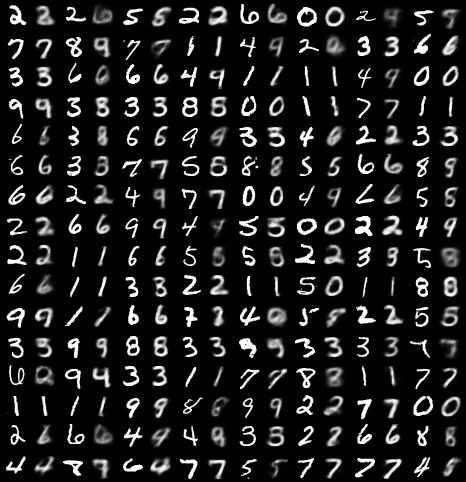 2 2 2 6 5 8 2 2 6 6 0 0 2 9 5 9
7 7 8 9 7 7 1 1 4 9 2 0 3 3 6 6
3 3 6 0 6 6 4 9 1 1 1 1 4 9 0 0
9 9 3 8 3 3 8 8 0 0 1 1 7 7 1 1
6 6 3 8 6 6 9 9 3 3 4 0 2 2 3 3
6 6 3 3 7 7 5 5 8 8 5 5 6 6 8 9
6 6 2 2 4 9 7 7 0 0 4 9 6 6 5 8
2 2 6 6 9 9 4 9 5 5 0 0 2 2 4 9
2 2 1 1 6 6 5 8 5 8 2 2 3 8 5 8
6 6 1 1 3 3 2 2 1 1 5 0 1 1 8 8
9 9 1 1 6 6 7 3 4 0 5 8 2 2 5 5
3 3 9 9 8 8 3 3 9 3 3 3 3 7 7
6 0 9 4 3 3 1 1 7 7 8 8 1 1 7 7
1 1 1 1 9 9 8 6 9 9 2 2 7 7 0 0
2 6 6 0 4 9 4 9 3 3 2 8 6 6 8 8
4 4 8 9 6 4 7 7 5 5 7 7 7 7 4 8